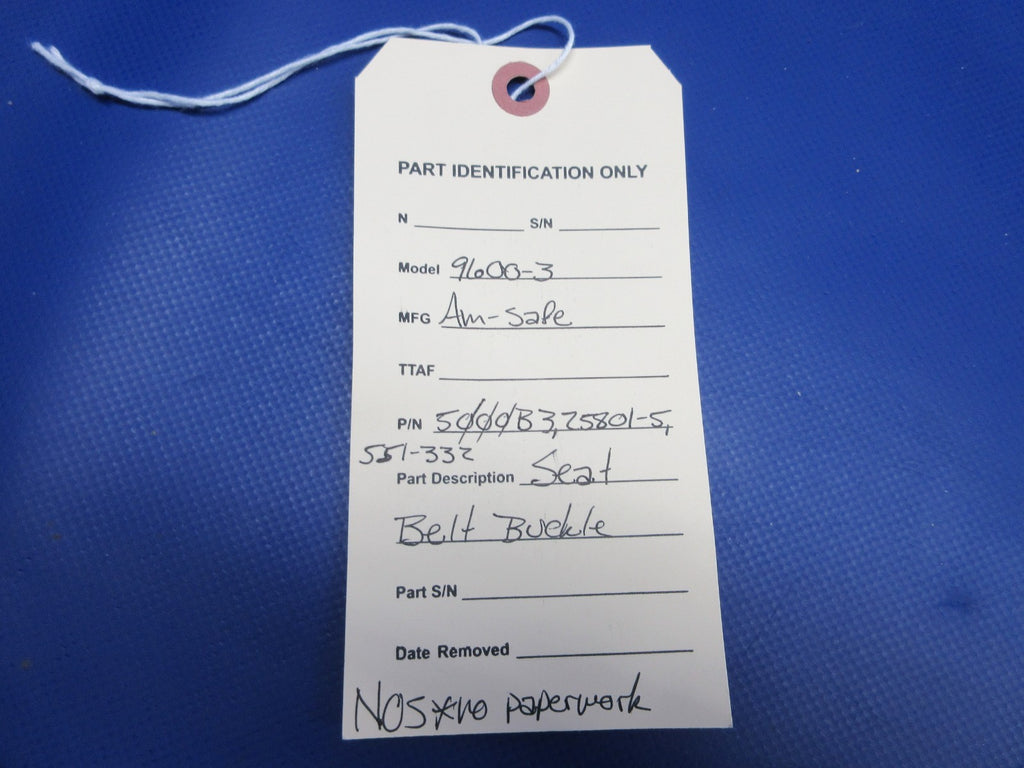 PART IDENTIFICATION ONLY
N S/N
Model 9600-3
MFG Am-Safe
TTAF
P/N 5000B3, 25801-5,
551-332
Part Description Seat
Belt Buckle
Part S/N
Date Removed
NOS*no paperwork